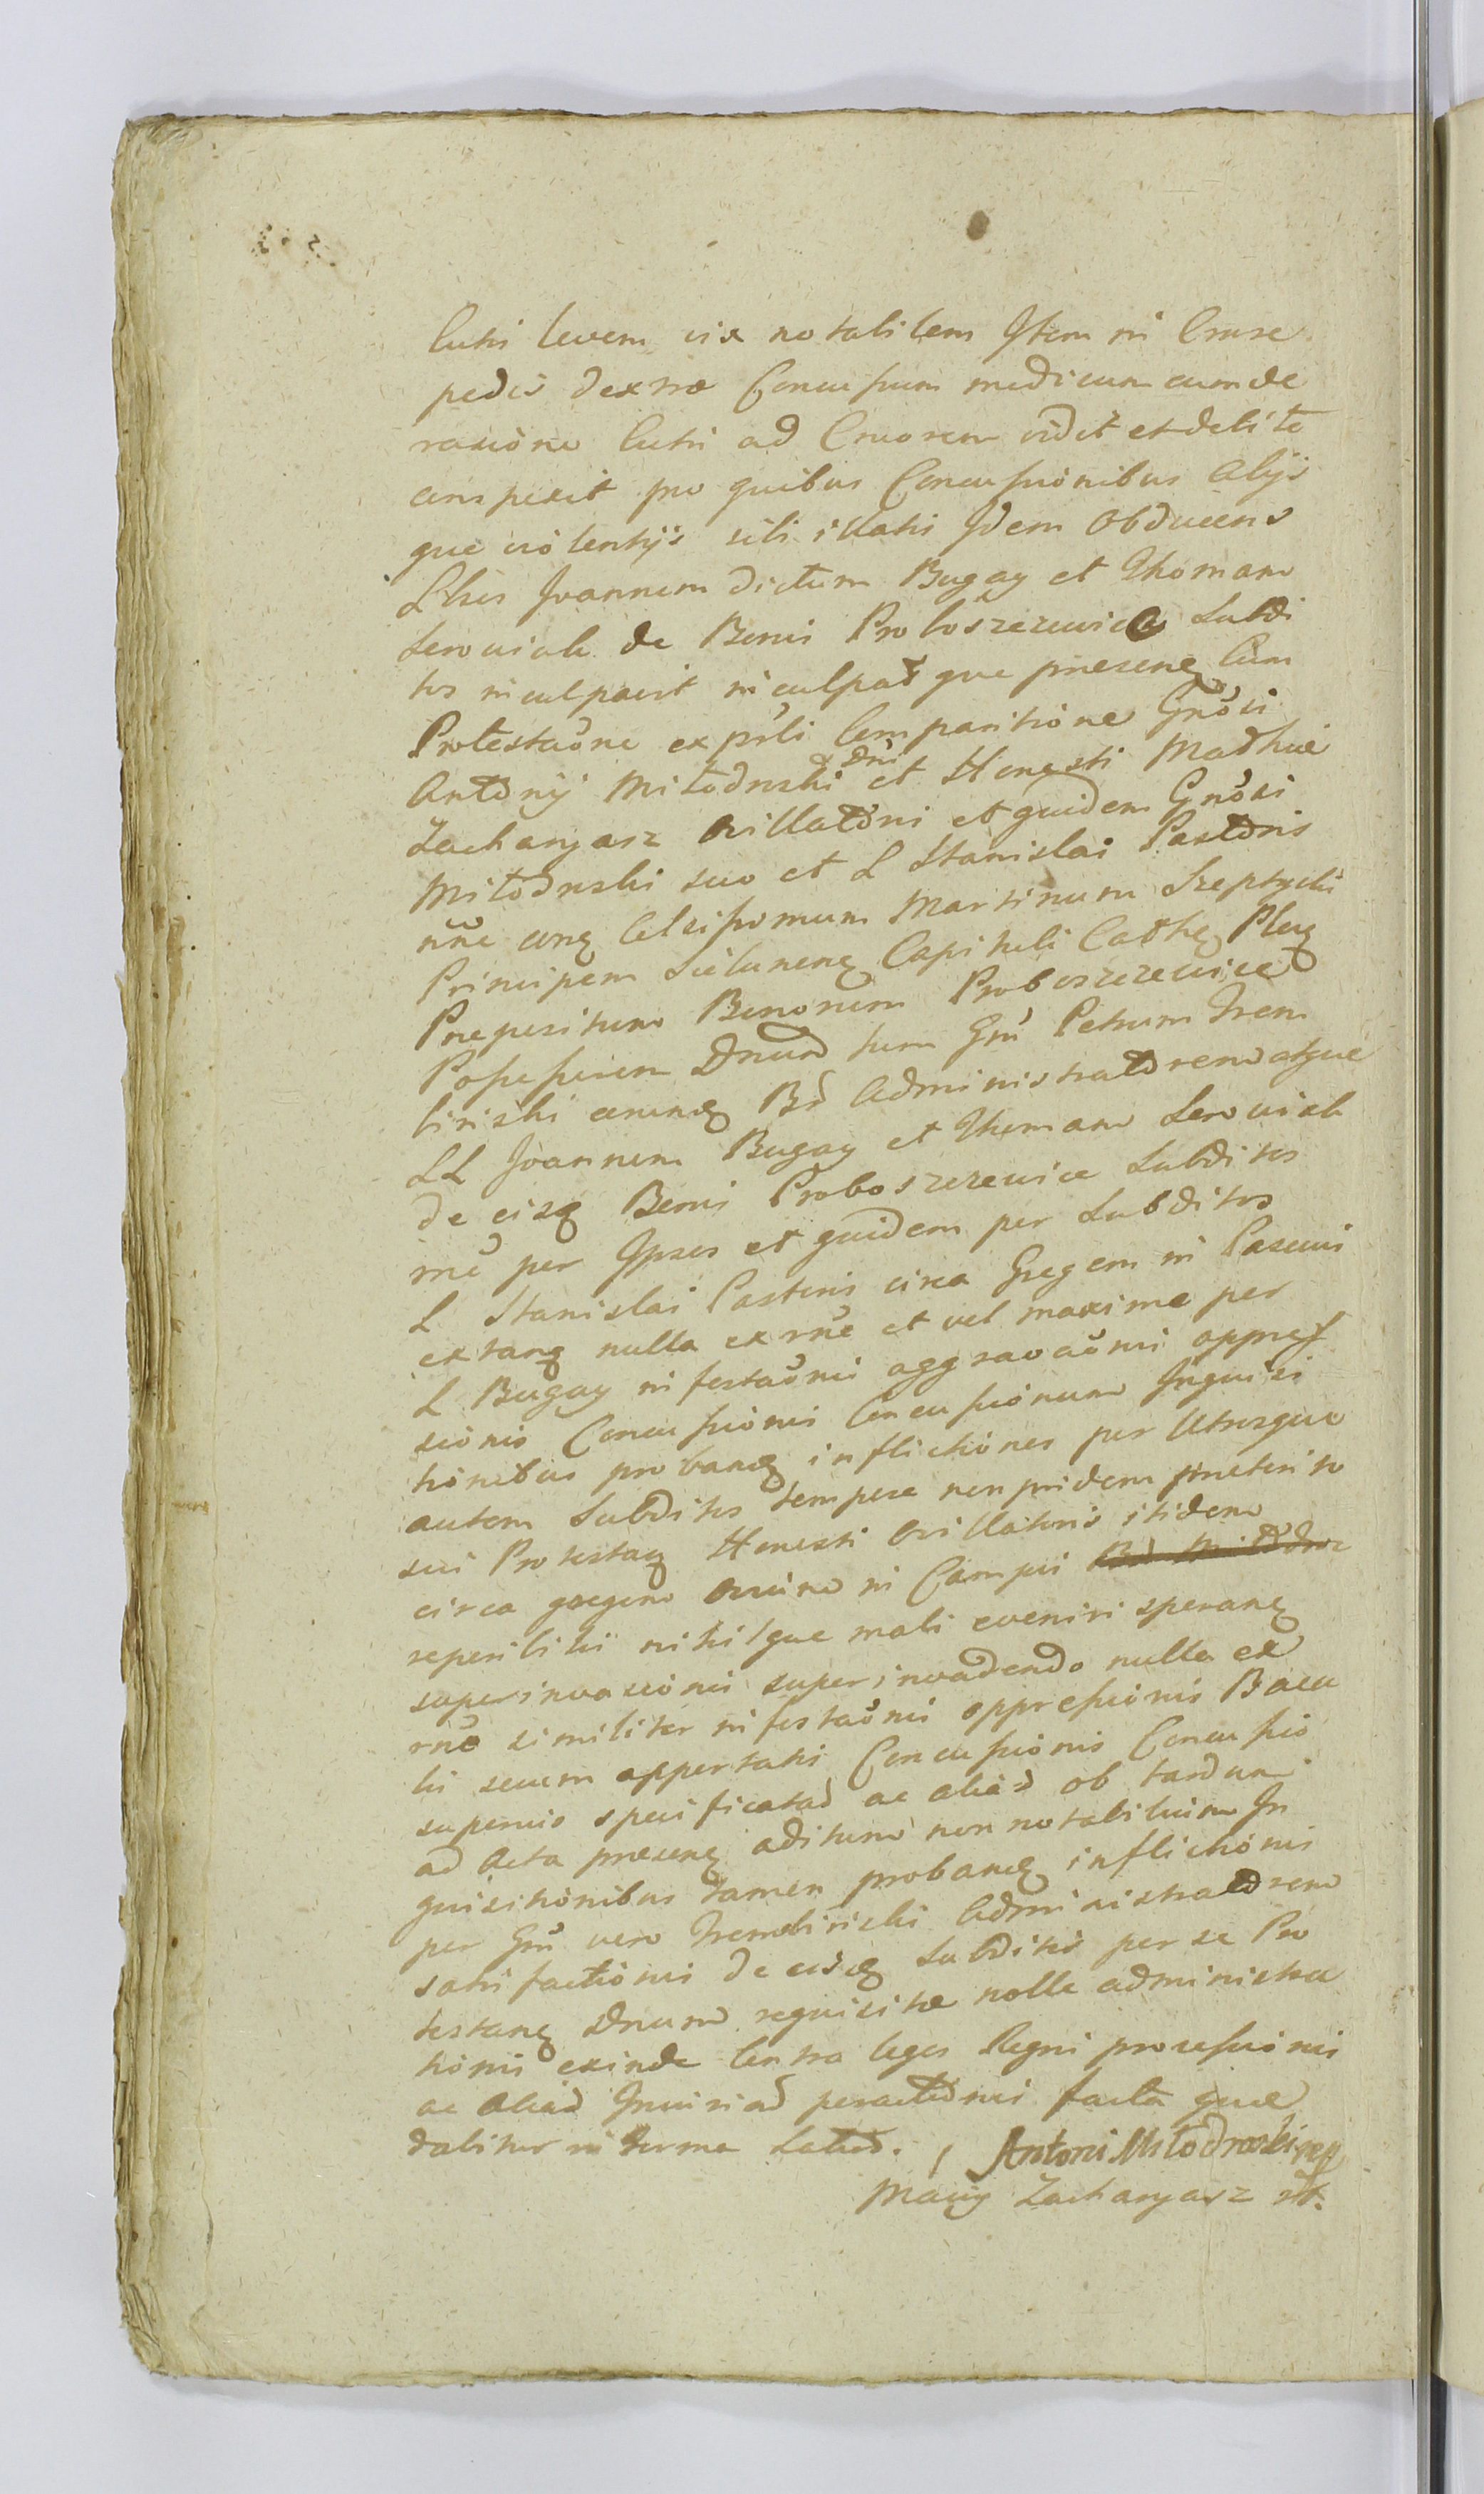 Cutis levem vix notabilem Item in Crure
pedis dextro Concussum medicum cum de
rasione Cutis ad Cruorem vidit et debite
conspexit pro quibus Concussionibus alijs
que violentijs sibi illatis Idem Obducens
LLris Joannem dictum Bugay et Thomam
Serowiak de Bonis Proboszczewice Subdi
tos inculpavit inculpatque presenq Cum
Protestaõne ex pñli Comparitione Gnõsi
Antonij Miłodroski Dni et Honesti Mathiæ
Zacharyasz Ovillatoris et quidem Gnõsi
Miłodroski suo et L Stanislai Pastoris
nñe conq Celsissimum Martinum Szeptycki
Principem Sielunenq Capituli Cathq Plocq
Prepositum Bonorum Proboszczewice
Possessorem Dnum suum Gñ Petrum Trem
biński eorumq Bñ Administratorem atque
LL Joannem Bugay et Thomam Serowiak
de eisq Bonis Proboszczewice Subditos
rñe per Ipsos et quidem per Subditos
L Stanislai Pastoris circa Gregem in Pascuis
extanq nulla ex rñe et vel maxime per
L Bugay infestaõnis aggravaõnis oppres
sionis Concussionis Concussionum Inquisi
tionibus probanq inflictiones per Utrosque
autem Subditos tempore non pridem præterito
sui Protestanq Honesti Ovillatoris itidem
circa gregem ovium in Campis
reperibilis nihilque mali eveniri speranq
superinvasionis superinvadendo nulla ex
rñe similiter infestaõnis oppressionis Bacu
lis secum apportatis Concussionis Concussio
superius specificatas ac alias ob tardum
ad Acta presenq aditum non notabilium In
quisitionibus tamen probanq inflictionis
per Gñ vero Trembiński Administratorem
satisfactionis de eisq Subditis per se Pro
testanq Dnum requisitæ nolle administra
tionis exinde Contra leges Regni processionis
ac alias Iniurias peractionis facta quæ
dabitur in forma Latius. Antoni Miłodroski mp
Maciey Zacharyasz